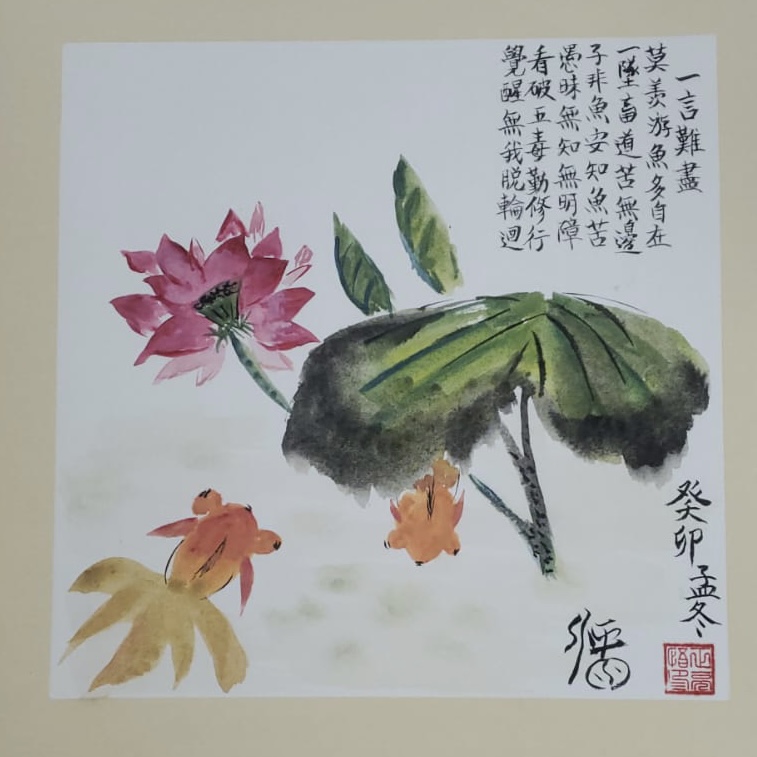 一言難盡
莫羨游魚多自在
一墜畜道苦無邊
子非魚安知魚苦
愚昧無知無明障
看破五毒勤修行
覺醒無我脱輪迴
癸卯孟冬